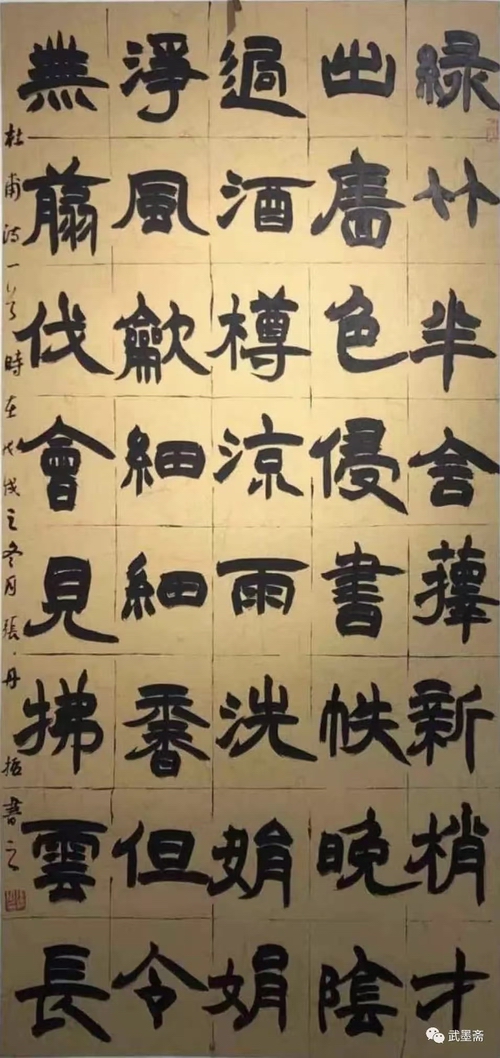 綠竹半含籜新梢才
出牆色侵書帙晚陰
過酒樽涼雨洗娟娟
淨風龡細細香但令
無翦伐會見拂雲長
杜甫詩一首時在戊戌之冬月張丹書之
武墨斋